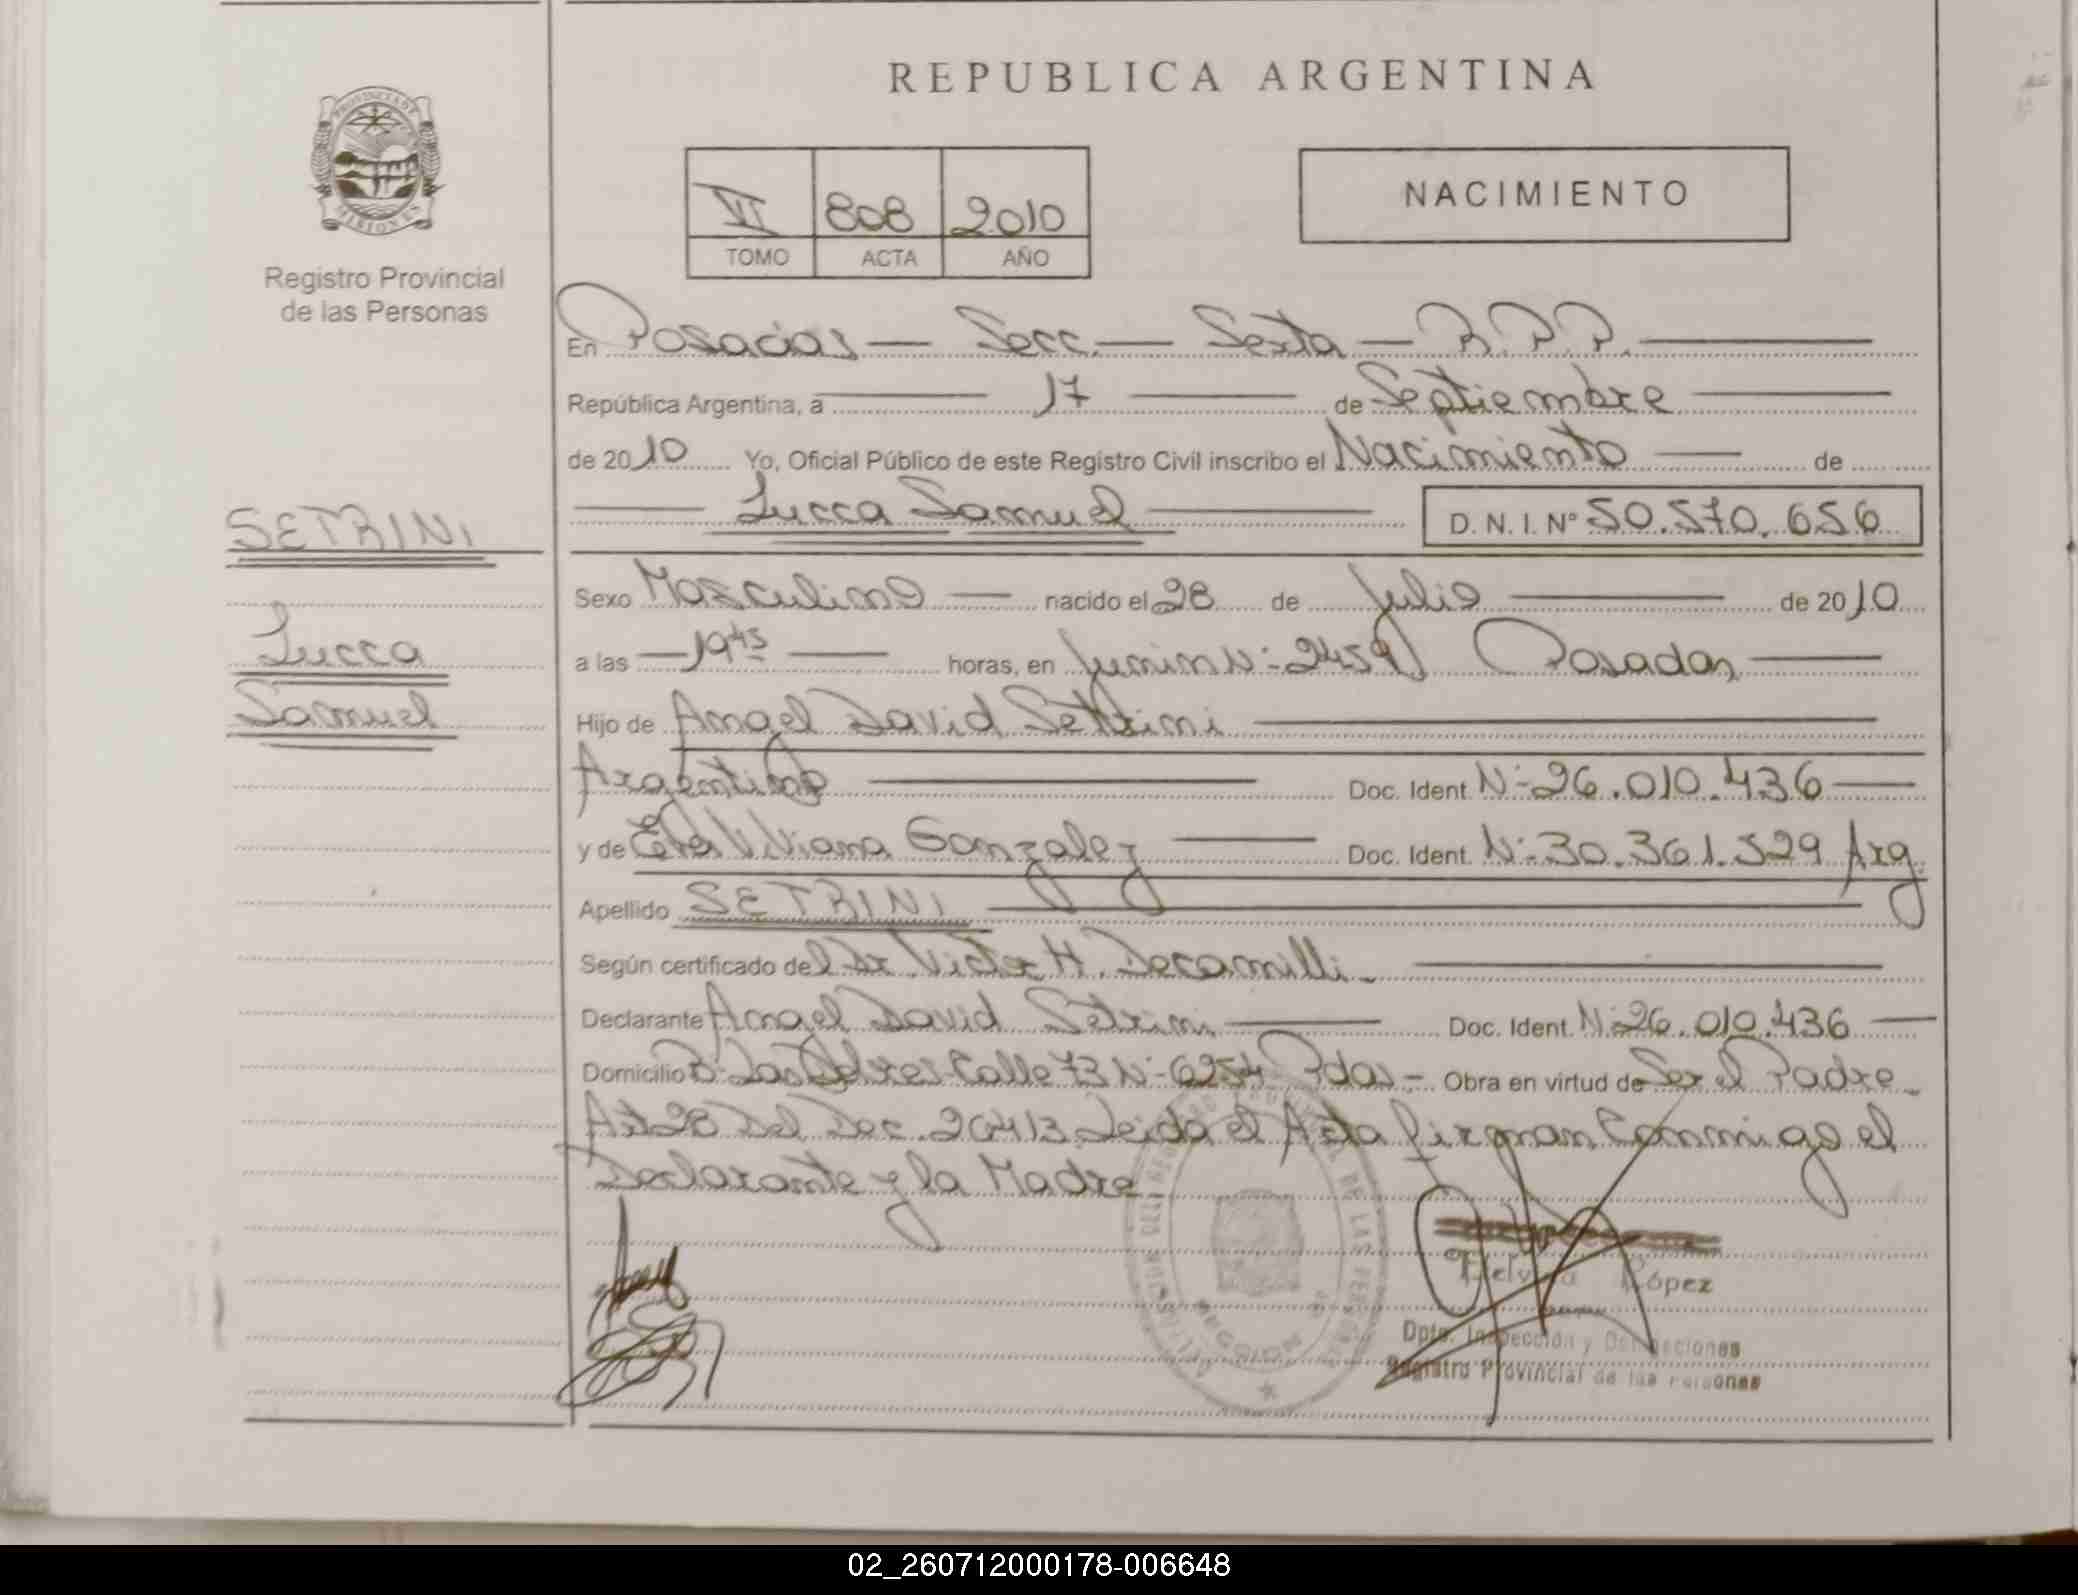 REPUBLICA ARGENTINA
PROVINCIA DE
MISIONES
Registro Provincial
de las Personas
VI 808 2010
TOMO ACTA AÑO
NACIMIENTO
En Posadas — Secc. — Sexta — R.P.P.
República Argentina, a — 17 — de Septiembre
de 2010 Yo, Oficial Público de este Registro Civil inscribo el Nacimiento — de
Lucca Samuel D. N. I. Nº 50.570.656
SETRINI
Sexo Masculino — nacido el 28 de Julio — de 2010
Lucca
a las — 19 45 — horas, en Junin Nº 2459 Posadas
Samuel
Hijo de Angel David Setrini
Argentino Doc. Ident Nº 26.010.436
y de Viviana Gonzalez Doc. Ident. Nº 30.361.529 Arg.
Apellido SETRINI
Según certificado del Dr Victor H. Decamilli
Declarante Angel David Setrini Doc. Ident. Nº 26.010.436
Domicilio Bº Las Calle 73 Nº 6254 Pdas - Obra en virtud de Ser el Padre
Art 28 Del Dec. 26413 Leida el Acta firman Conmigo el
Declarante y la Madre
López
Dpto. Inspección y
Registro Provincial de las Personas
02_260712000178-006648